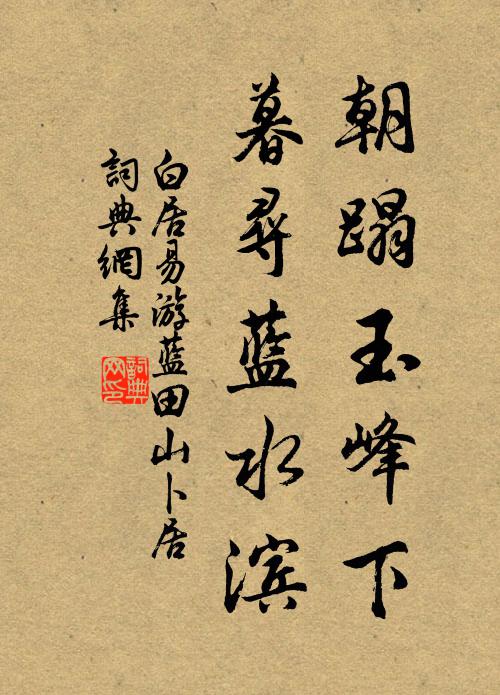 朝蹋玉峰下
暮尋藍水滨
白居易游藍田山卜居
詞典網集
詞典
网印